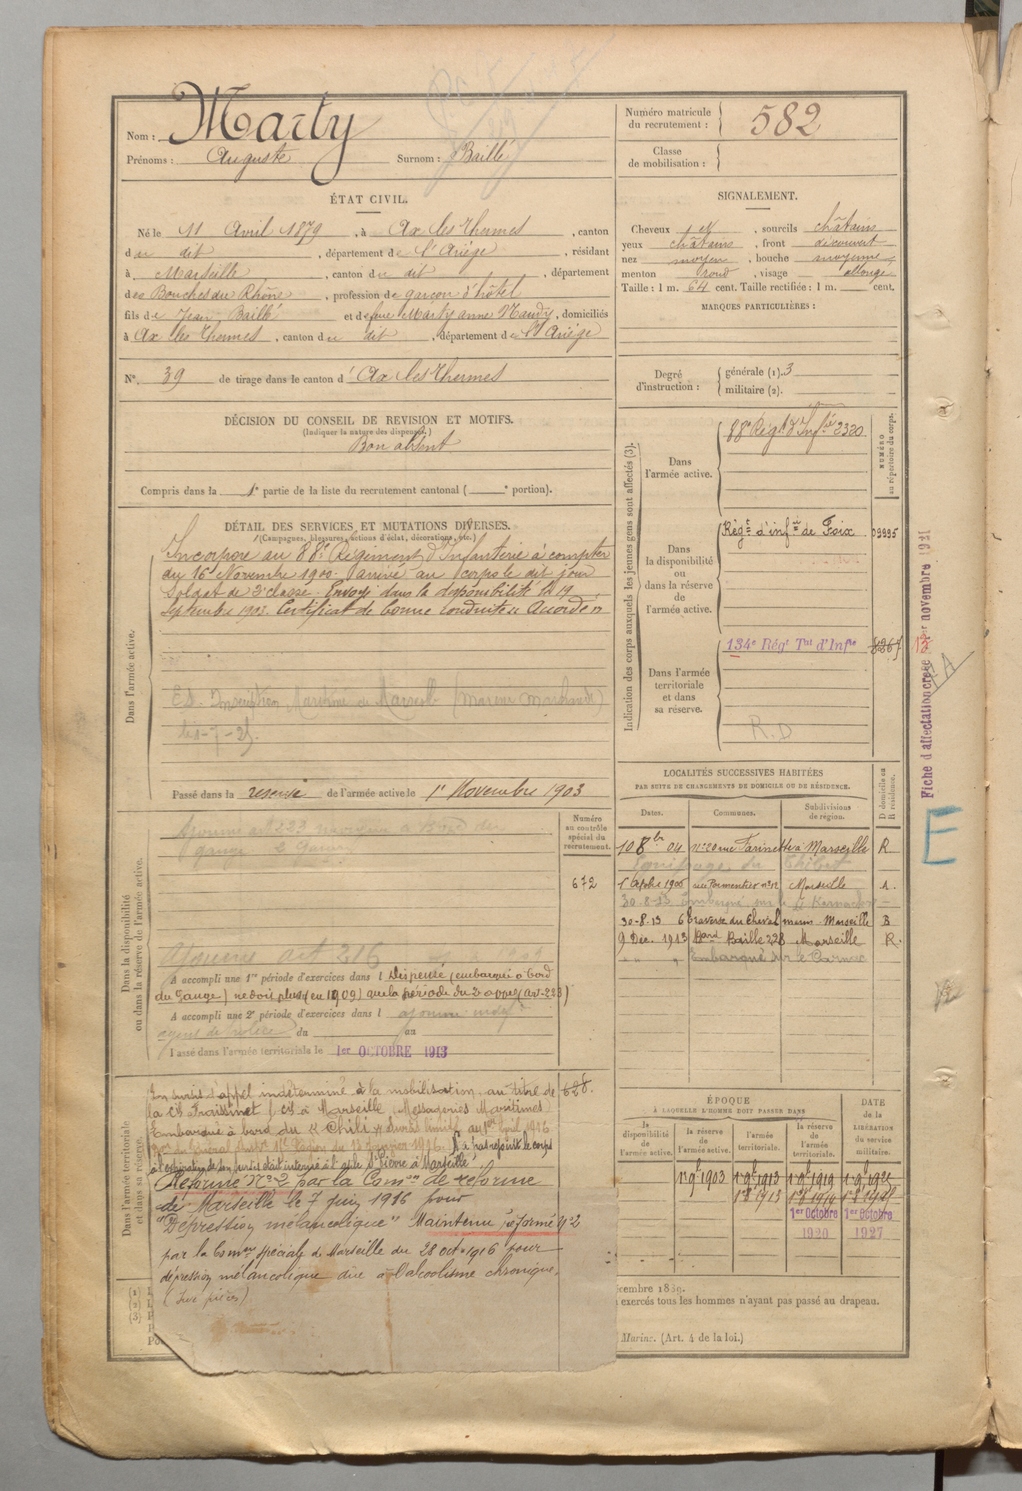 Nom : Marty
Prénoms : Auguste Surnom : Baillé
Numéro matricule du recrutement : 582
Classe de mobilisation :
ÉTAT CIVIL.
Né le 11 Avril 1879, à Ax les Thermes, canton
du dit, département de l'Ariège, résidant
à Marseille, canton du dit, département
des Bouches du Rhône, profession de garçon d'hôtel
fils de Jean Baillé et de feue Marty anne Maudy, domiciliés
à Ax les Thermes, canton du dit, département de l'Ariège
N° 39 de tirage dans le canton d'Ax les Thermes
SIGNALEMENT.
Cheveux et, sourcils châtains
yeux châtains, front découvert
nez moyen, bouche moyenne
menton rond, visage allongé
Taille : 1 m. 64 cent. Taille rectifiée : 1 m. cent.
MARQUES PARTICULIÈRES :
Degré d'instruction : générale (1). 3
militaire (2).
DÉCISION DU CONSEIL DE REVISION ET MOTIFS.
(Indiquer la nature des dispenses.)
Bon absent
Compris dans la 1e partie de la liste du recrutement cantonal ( e portion).
DÉTAIL DES SERVICES ET MUTATIONS DIVERSES.
(Campagnes, blessures, actions d'éclat, décorations, etc.)
Dans l'armée active.
Incorporé au 88e Régiment d'Infanterie à compter
du 16 Novembre 1900 arrivé au corps le dit jour
Soldat de 2e classe. Envoyé dans la disponibilité le 19
Septembre 1903. Certificat de bonne conduite Accordé
Inscription Maritime de Marseille (marine marchande)
Passé dans la réserve de l'armée active le 1er Novembre 1903
Indication des corps auxquels les jeunes gens sont affectés (3).
NUMÉRO au répertoire du corps.
Dans l'armée active.
88e Régt d'Infie 2320
Dans la disponibilité ou dans la réserve de l'armée active.
Régt d'infie de Foix 09995
Dans l'armée territoriale et dans sa réserve.
134e Régt Tal d'Infie
R.D
Fiche d'affectation créée novembre 1921
E
LOCALITÉS SUCCESSIVES HABITÉES
PAR SUITE DE CHANGEMENTS DE DOMICILE OU DE RÉSIDENCE.
Dates. Communes. Subdivisions de région. D domicile ou R résidence.
10 8bre 04 n° 20 rue Farinette à Marseille R
Équipage du Thibet
1er Octobre 1906 rue Parmentier n° 12 Marseille
30-8-13 Embarqué sur le
30-8-13 6 traverse du Cheval Marseille
9 Déc. 1913 Bard Baille 228 Marseille R.
Embarqué sur le
Dans la disponibilité ou dans la réserve de l'armée active.
Numéro au contrôle spécial du recrutement.
672
Ajourné art 223 navigue à bord du
gange
Ajourné art 216
A accompli une 1re période d'exercices dans l Dispensé (embarqué à bord
du Gange) ne doit plus (en 1909) que la période du 2e appel (art. 223)
A accompli une 2e période d'exercices dans l ajourné indéf.
du au
Passé dans l'armée territoriale le 1er OCTOBRE 1913
Dans l'armée territoriale et dans sa réserve.
En sursis d'appel indéterminé à la mobilisation, au titre de
la Cie Fraissinet Cie à Marseille (Messageries Maritimes)
Embarqué à bord du "Chili"
N'a pas rejoint le corps
à l'expiration de son sursis était interné à l'asile St Pierre à Marseille
Réformé N° 2 par la Comon de réforme
de Marseille le 7 juin 1916 pour
"Dépression mélancolique" Maintenu réformé n° 2
par la Comon spéciale de Marseille du 28 oct. 1916 pour
dépression mélancolique due à l'alcoolisme chronique.
ÉPOQUE
À LAQUELLE L'HOMME DOIT PASSER DANS
DATE de la LIBÉRATION du service militaire.
la disponibilité de l'armée active. la réserve de l'armée active. l'armée territoriale. la réserve de l'armée territoriale.
1er 9bre 1903 1er 9bre 1913 1er 9bre 1919
1er 8bre 1913
1er Octobre 1er Octobre
1920 1927
exercés tous les hommes n'ayant pas passé au drapeau.
Marine. (Art. 4 de la loi.)